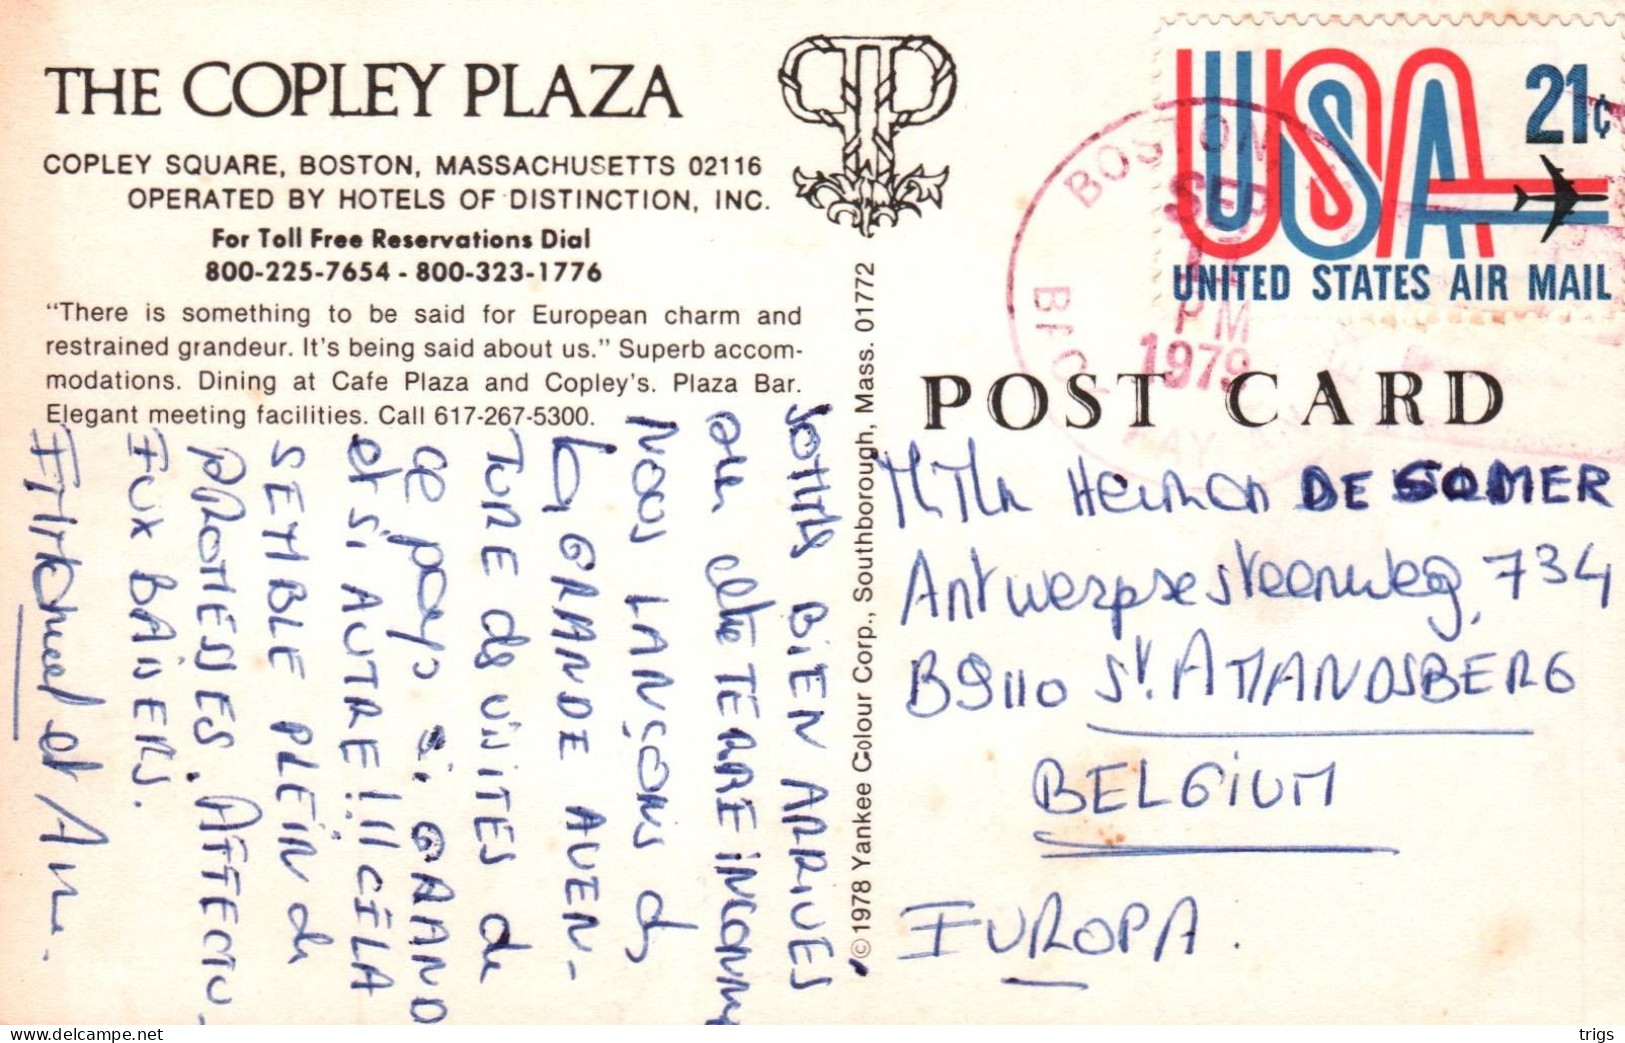 THE COPLEY PLAZA
COPLEY SQUARE, BOSTON, MASSACHUSETTS 02116
OPERATED BY HOTELS OF DISTINCTION, INC.
For Toll Free Reservations Dial
800-225-7654 - 800-323-1776
"There is something to be said for European charm and
restrained grandeur. It's being said about us." Superb accom-
modations. Dining at Cafe Plaza and Copley's. Plaza Bar.
Elegant meeting facilities. Call 617-267-5300.
SOMMES BIEN ARRIVES
cette TERRE inconnue
NOUS LANÇONS
LA GRANDE AVEN-
TURE de VISITES de
ce pays si GRAND
et si AUTRE!!! CELA
SEMBLE PLEIN de
PROMESSES. AFFECTU-
EUX BAISERS.
et Ann.
©1978 Yankee Colour Corp., Southborough, Mass. 01772
USA 21¢
UNITED STATES AIR MAIL
BOSTON
SEP
PM
1979
POST CARD
Herman DE SOMER
Antwerpsesteenweg, 734
B9110 St. AMANDSBERG
BELGIUM
EUROPA.
delcampe.net
trigs